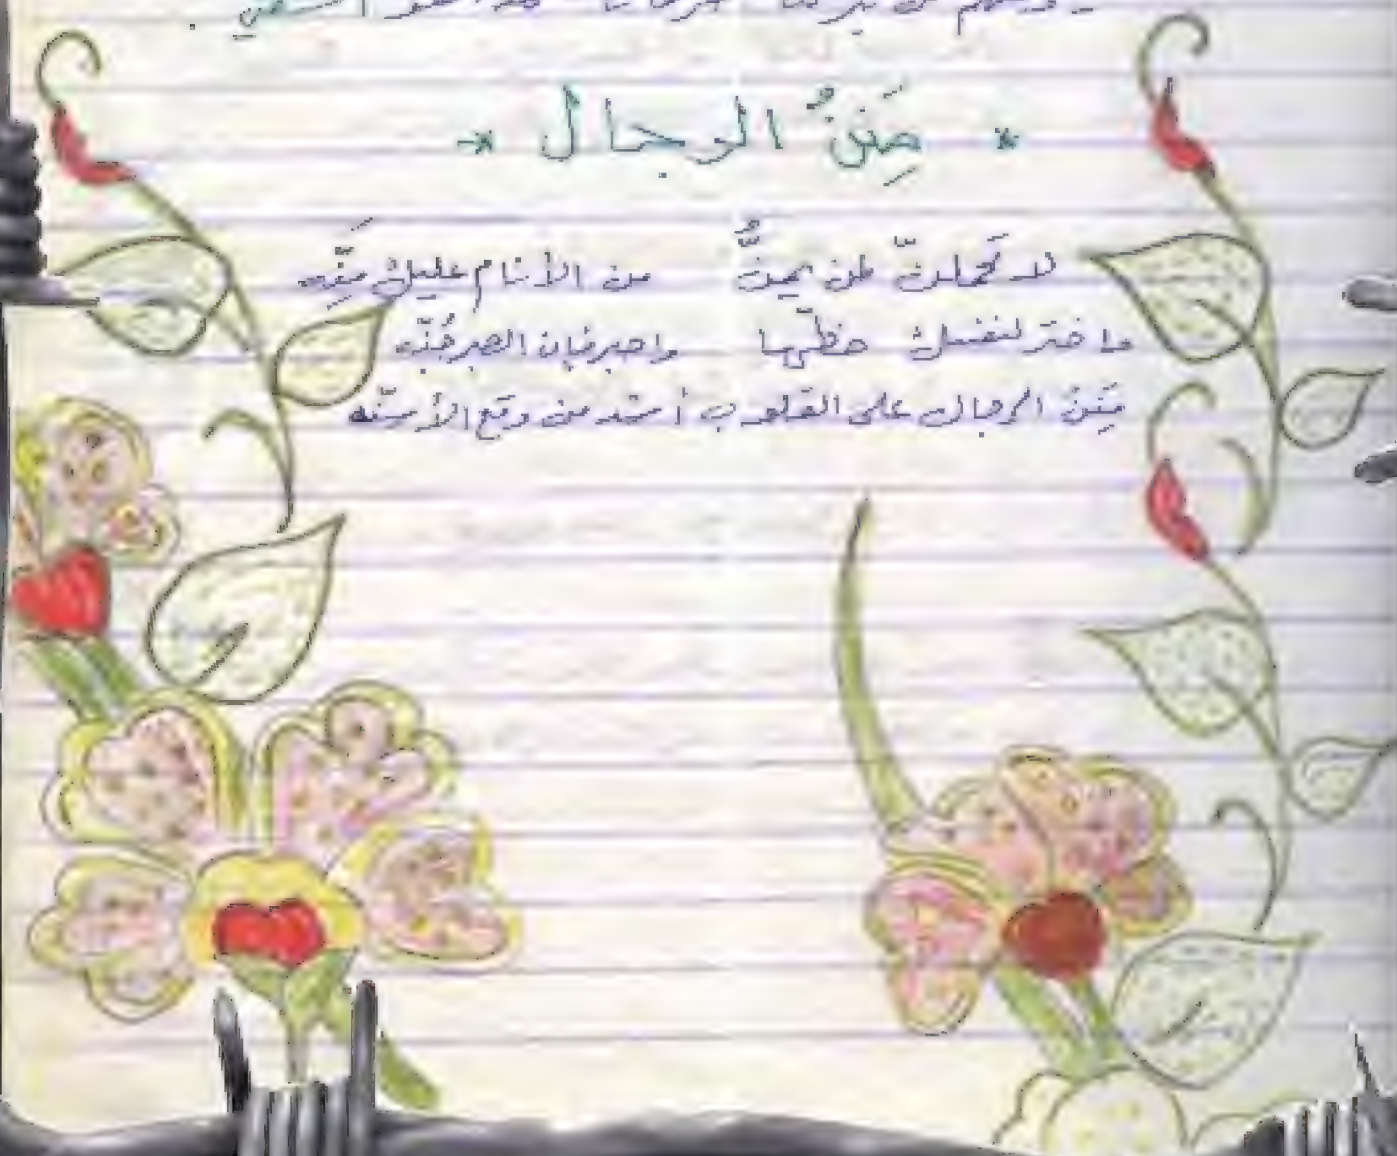 * مِنَنُ الرجال *
لا تحملنّ لمن يمنُّ من الأنام عليك مِنَّه
واختر لنفسك حظّها واصبر فإن الصبر جُنّه
مِنَنُ الرجال على القلوب أشد من وقع الأسنّه